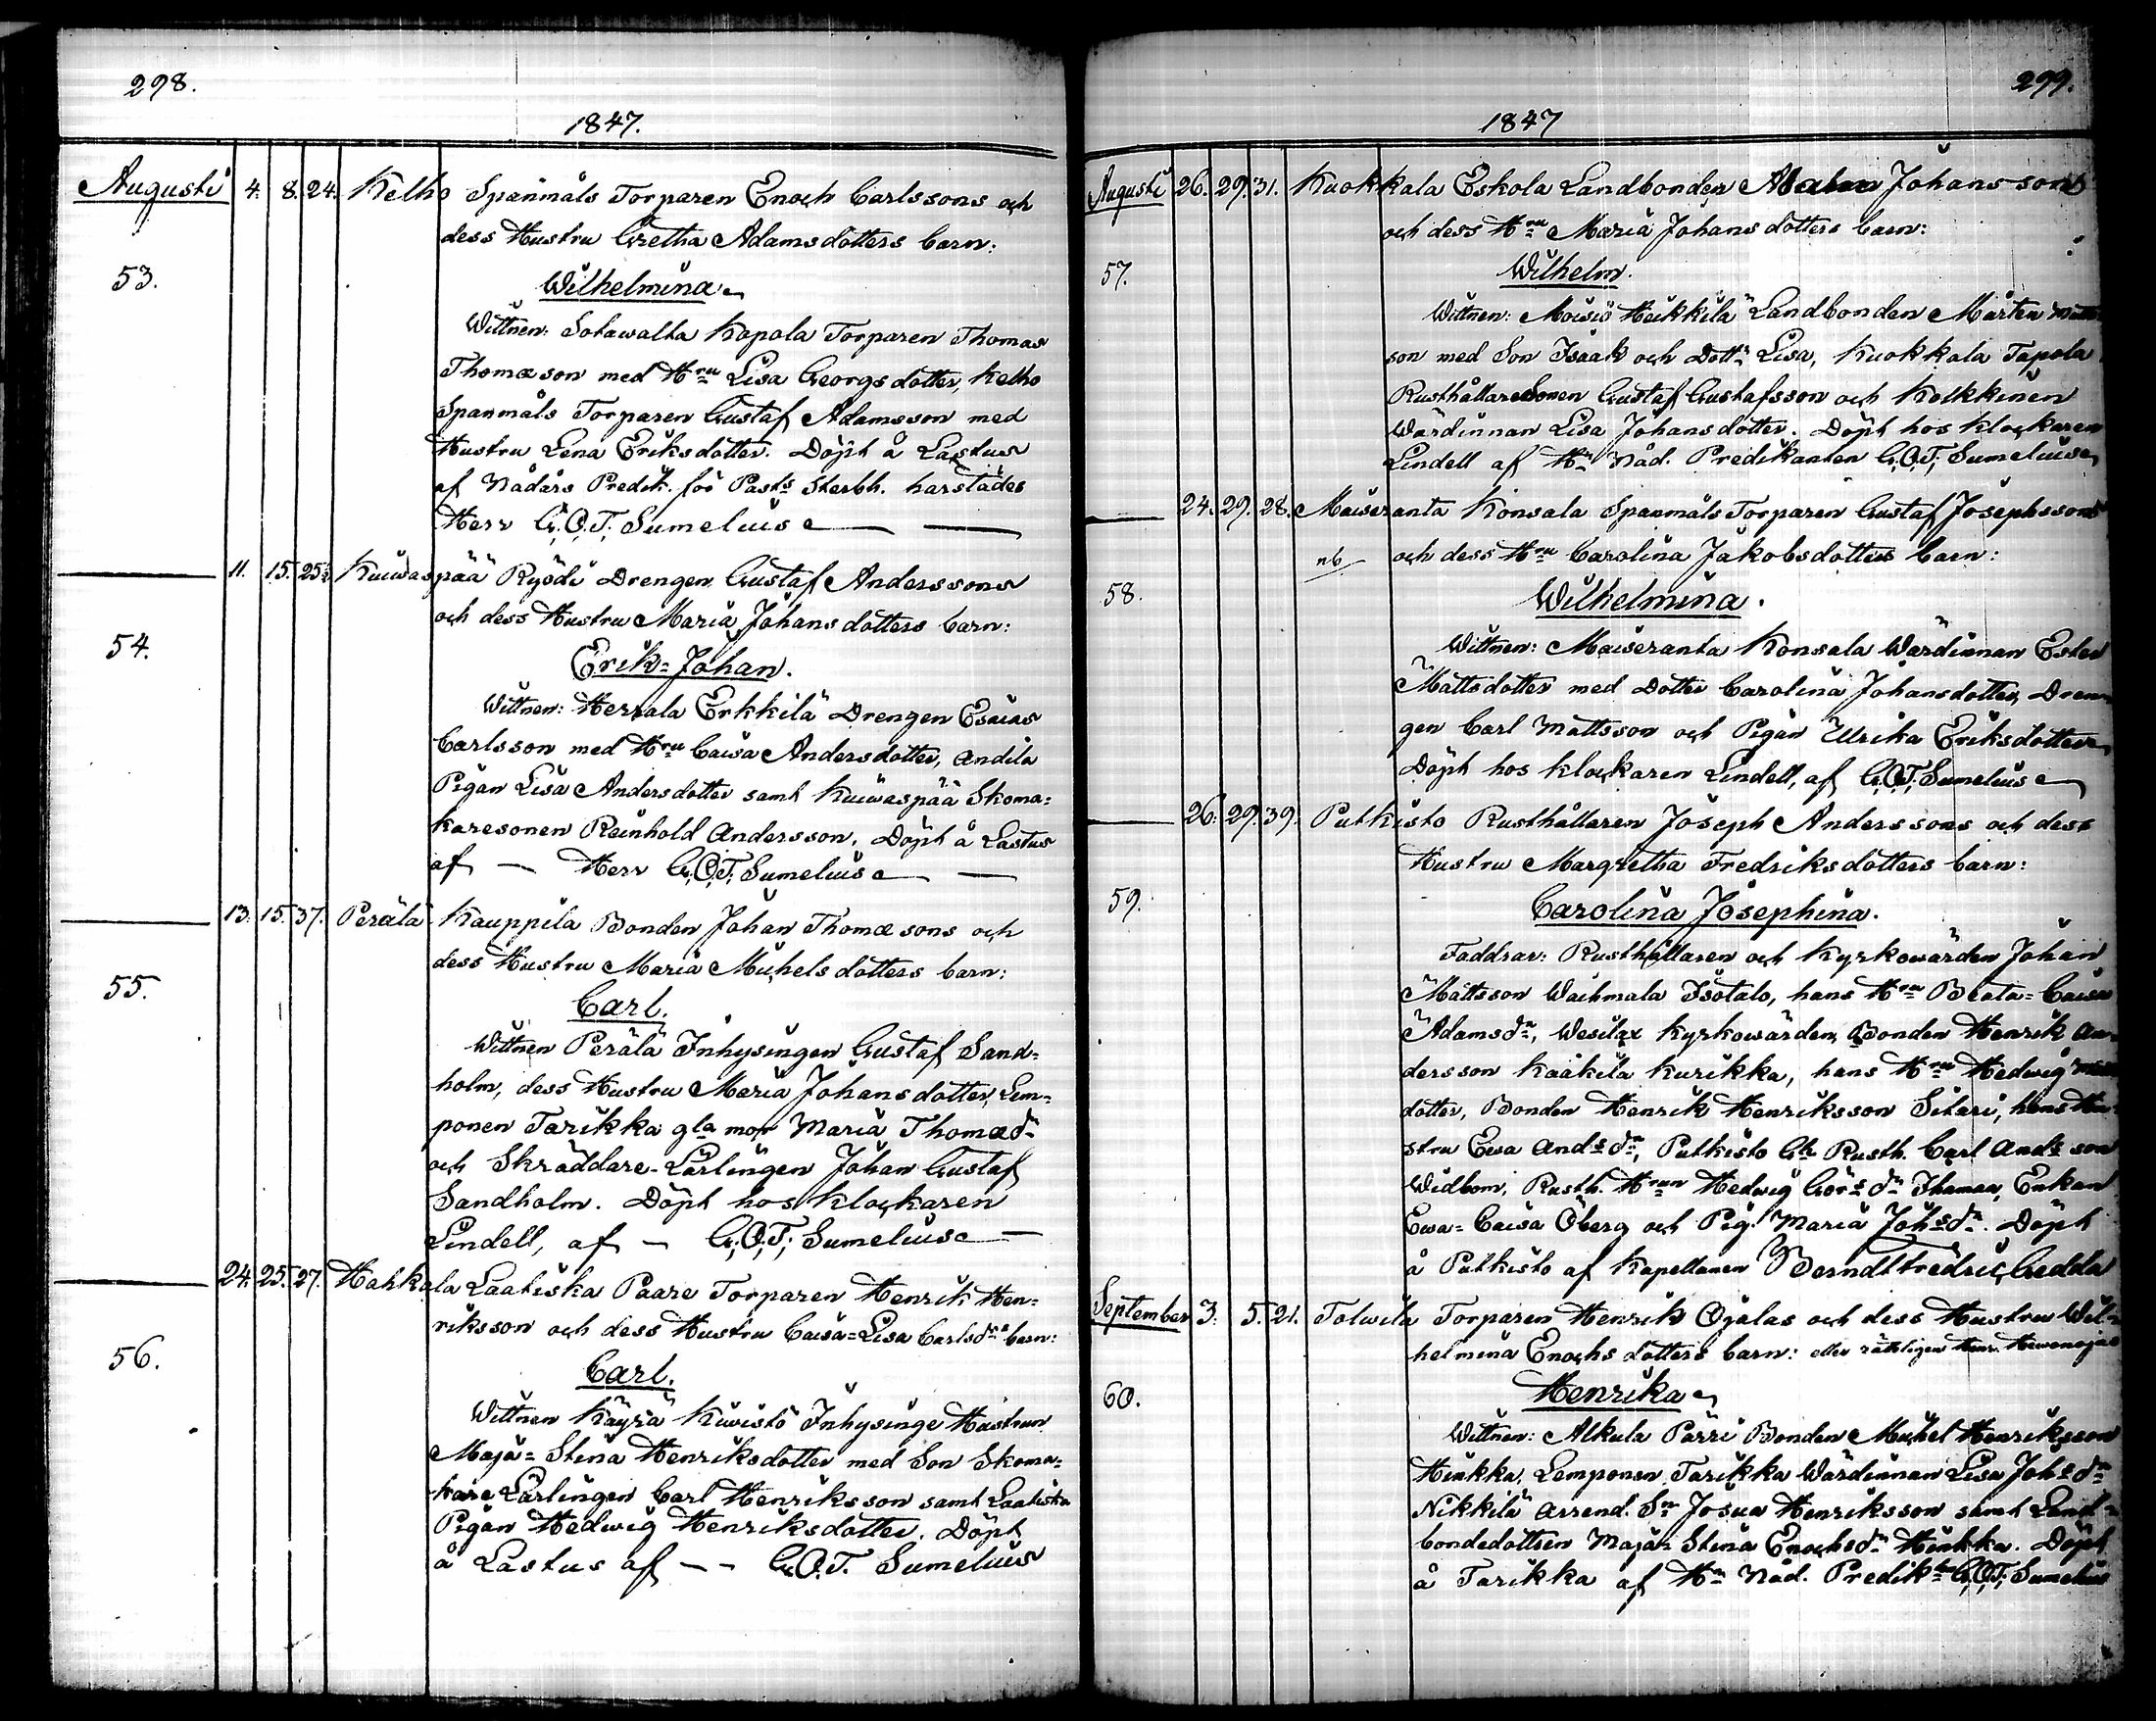 298.
1847.
Augusti 4. 8. 24. Kelho Spanmåls Torparen Enoch Carlssons och
dess Hustru Gretha Adamsdotters barn:
53.
Wilhelmina
Wittnen: Sotawalta Kopola Torparen Thomas
Thomæson med Hru Lisa Georgsdotter, Kelho
Spanmåls Torparen Gustaf Adamsson med
Hustru Lena Eriksdotter. Döpt å Lastus
af Nådårs Predik. för Pasts Sterbh. härstädes
Herr G.O.T. Sumelius
11. 15. 25½ Kuiwaspää Ryödi Drengen Gustaf Anderssons
och dess Hustru Maria Johansdotters barn:
54.
Erik-Johan.
Wittnen: Herrala Erkkilä Drengen Esaias
Carlsson med Hru Caisa Andersdotter, Andila
Pigan Lisa Andersdotter samt Kuiwaspää Skoma-
karesonen Reinhold Andersson. Döpt å Lastus
af — Herr G.O.T. Sumelius —
13. 15. 37. Perälä Kauppila Bonden Johan Thomæsons och
dess Hustru Maria Michelsdotters barn:
55.
Carl.
Wittnen Perälä Inhysingen Gustaf Sand-
holm, dess Hustru Maria Johansdotter, Lem-
ponen Tarikka gla mor Maria Thomædr
och Skräddare-Lärlingen Johan Gustaf
Sandholm. Döpt hos klockaren
Lindell, af — G.O.T. Sumelius —
24. 25. 27. Hahkala Laatiska Paare Torparen Henrik Hen-
riksson och dess Hustru Caisa-Lisa Carlsdrs barn:
56.
Carl.
Wittnen Käyrä Kiwistö Inhysinge Hustrun
Maja-Stina Henriksdotter med Son Skoma-
kare Lärlingen Carl Henriksson samt Laatiska
Pigan Hedwig Henriksdotter. Döpt
å Lastus af — — G.O.T. Sumelius
299.
1847
Augusti 26. 29. 31. Kuokkala Eskola Landbonden Johanssons
och dess Hru Maria Johansdotters barn:
57.
Wilhelm.
Wittnen: Moisio Heikkilä Landbonden Mårten Matts-
son med Son Isaak och Dottr Lisa, Kuokkala Tapola
RusthållareSonen Gustaf Gustafsson och Kolkkinen
Wärdinnan Lisa Johansdotter. Döpt hos klockaren
Lindell af Hr Nåd. Predikanten G.O.T. Sumelius
24. 29. 28. Maiseranta Konsala Spanmåls Torparen Gustaf Josephssons
nb och dess Hru Carolina Jakobsdotters barn:
58.
Wilhelmina.
Wittnen: Maiseranta Konsala Wärdinnan Ester
Mattsdotter med Dotter Carolina Johansdotter, Dren-
gen Carl Mattsson och Pigan Ulrika Eriksdotter
Döpt hos klockaren Lindell, af G.O.T. Sumelius
26. 29. 39. Putkisto Rusthållaren Joseph Anderssons och dess
Hustru Margretha Fredriksdotters barn:
59.
Carolina Josephina.
Faddrar: Rusthållaren och Kyrkowärden Johan
Mattsson Waihmala Isotalo, hans Hru Beata-Caisa
Adamsdr, Wesilax Kyrkowärden, Bonden Henrik An-
dersson Kaakila Kurikka, hans Hru Hedwig
dotter, Bonden Henrik Henriksson Sitari, hans Hu-
stru Ewa Andsdr, Putkisto Gle Rusth. Carl Andsson
Widbom, Rusth. Hrun Hedwig Görsdr Ihamaa, Enkan
Ewa-Caisa Öberg och Pig. Maria Johsdr. Döpt
å Putkisto af Kapellanen Berndt Fredric Gedda
September 3. 5. 21. Tolwila Torparen Henrik Ojalas och dess Hustru Wil-
helmina Enochsdotters barn: eller rätteligen Henr. Hewonojas
60.
Henrika
Wittnen: Alkula Pärri Bonden Michel Henriksson
Hinkka, Lemponen Tarikka Wärdinnan Lisa Johsdr
Nikkilä Arrend. Sn Josua Henriksson samt Land-
bondedottren Maja-Stina Enochsdr Hinkka. Döpt
å Tarikka af Hr Nåd. Predikten G.O.T. Sumelius